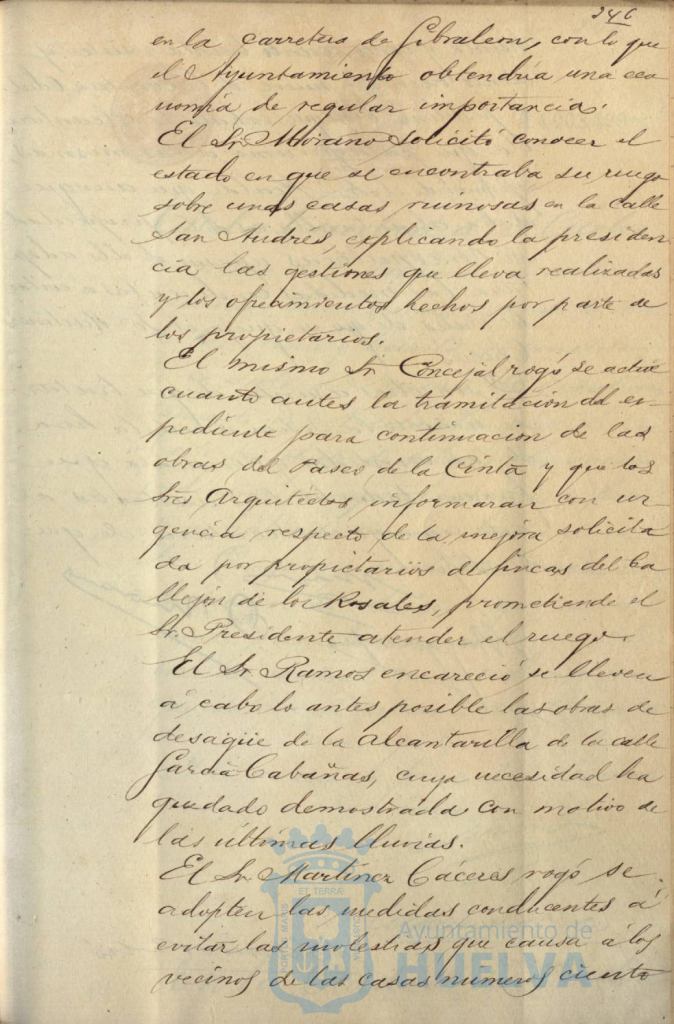 246
en la carretera de Gibraleon, con lo que
el Ayuntamiento obtendría una eco
nomía de regular importancia.
El Sr. Morano solicitó conocer el
estado en que se encontraba su ruego
sobre unas casas ruinosas en la calle
San Andrés, explicando la presiden-
cia las gestiones que lleva realizadas
y los ofrecimientos hechos por parte de
los propietarios.
El mismo Sr. Concejal rogó se active
cuanto antes la tramitación del ex-
pediente para continuacion de las
obras del Paseo de la Cinta y que los
Sres Arquitectos informaran con ur
gencia respecto de la mejora solicita
da por propietarios de fincas del Ca
llejón de los Rosales, prometiendo el
Sr. Presidente atender el ruego.
El Sr. Ramos encareció se lleven
á cabo lo antes posible las obras de
desagüe de la alcantarilla de la calle
García Cabañas, cuya necesidad ha
quedado demostrada con motivo de
las últimas lluvias.
El Sr. Martínez Cáceres rogó se
adopten las medidas conducentes á
evitar las molestias que causa á los
vecinos de las casas numeros ciento
Ayuntamiento de
HUELVA